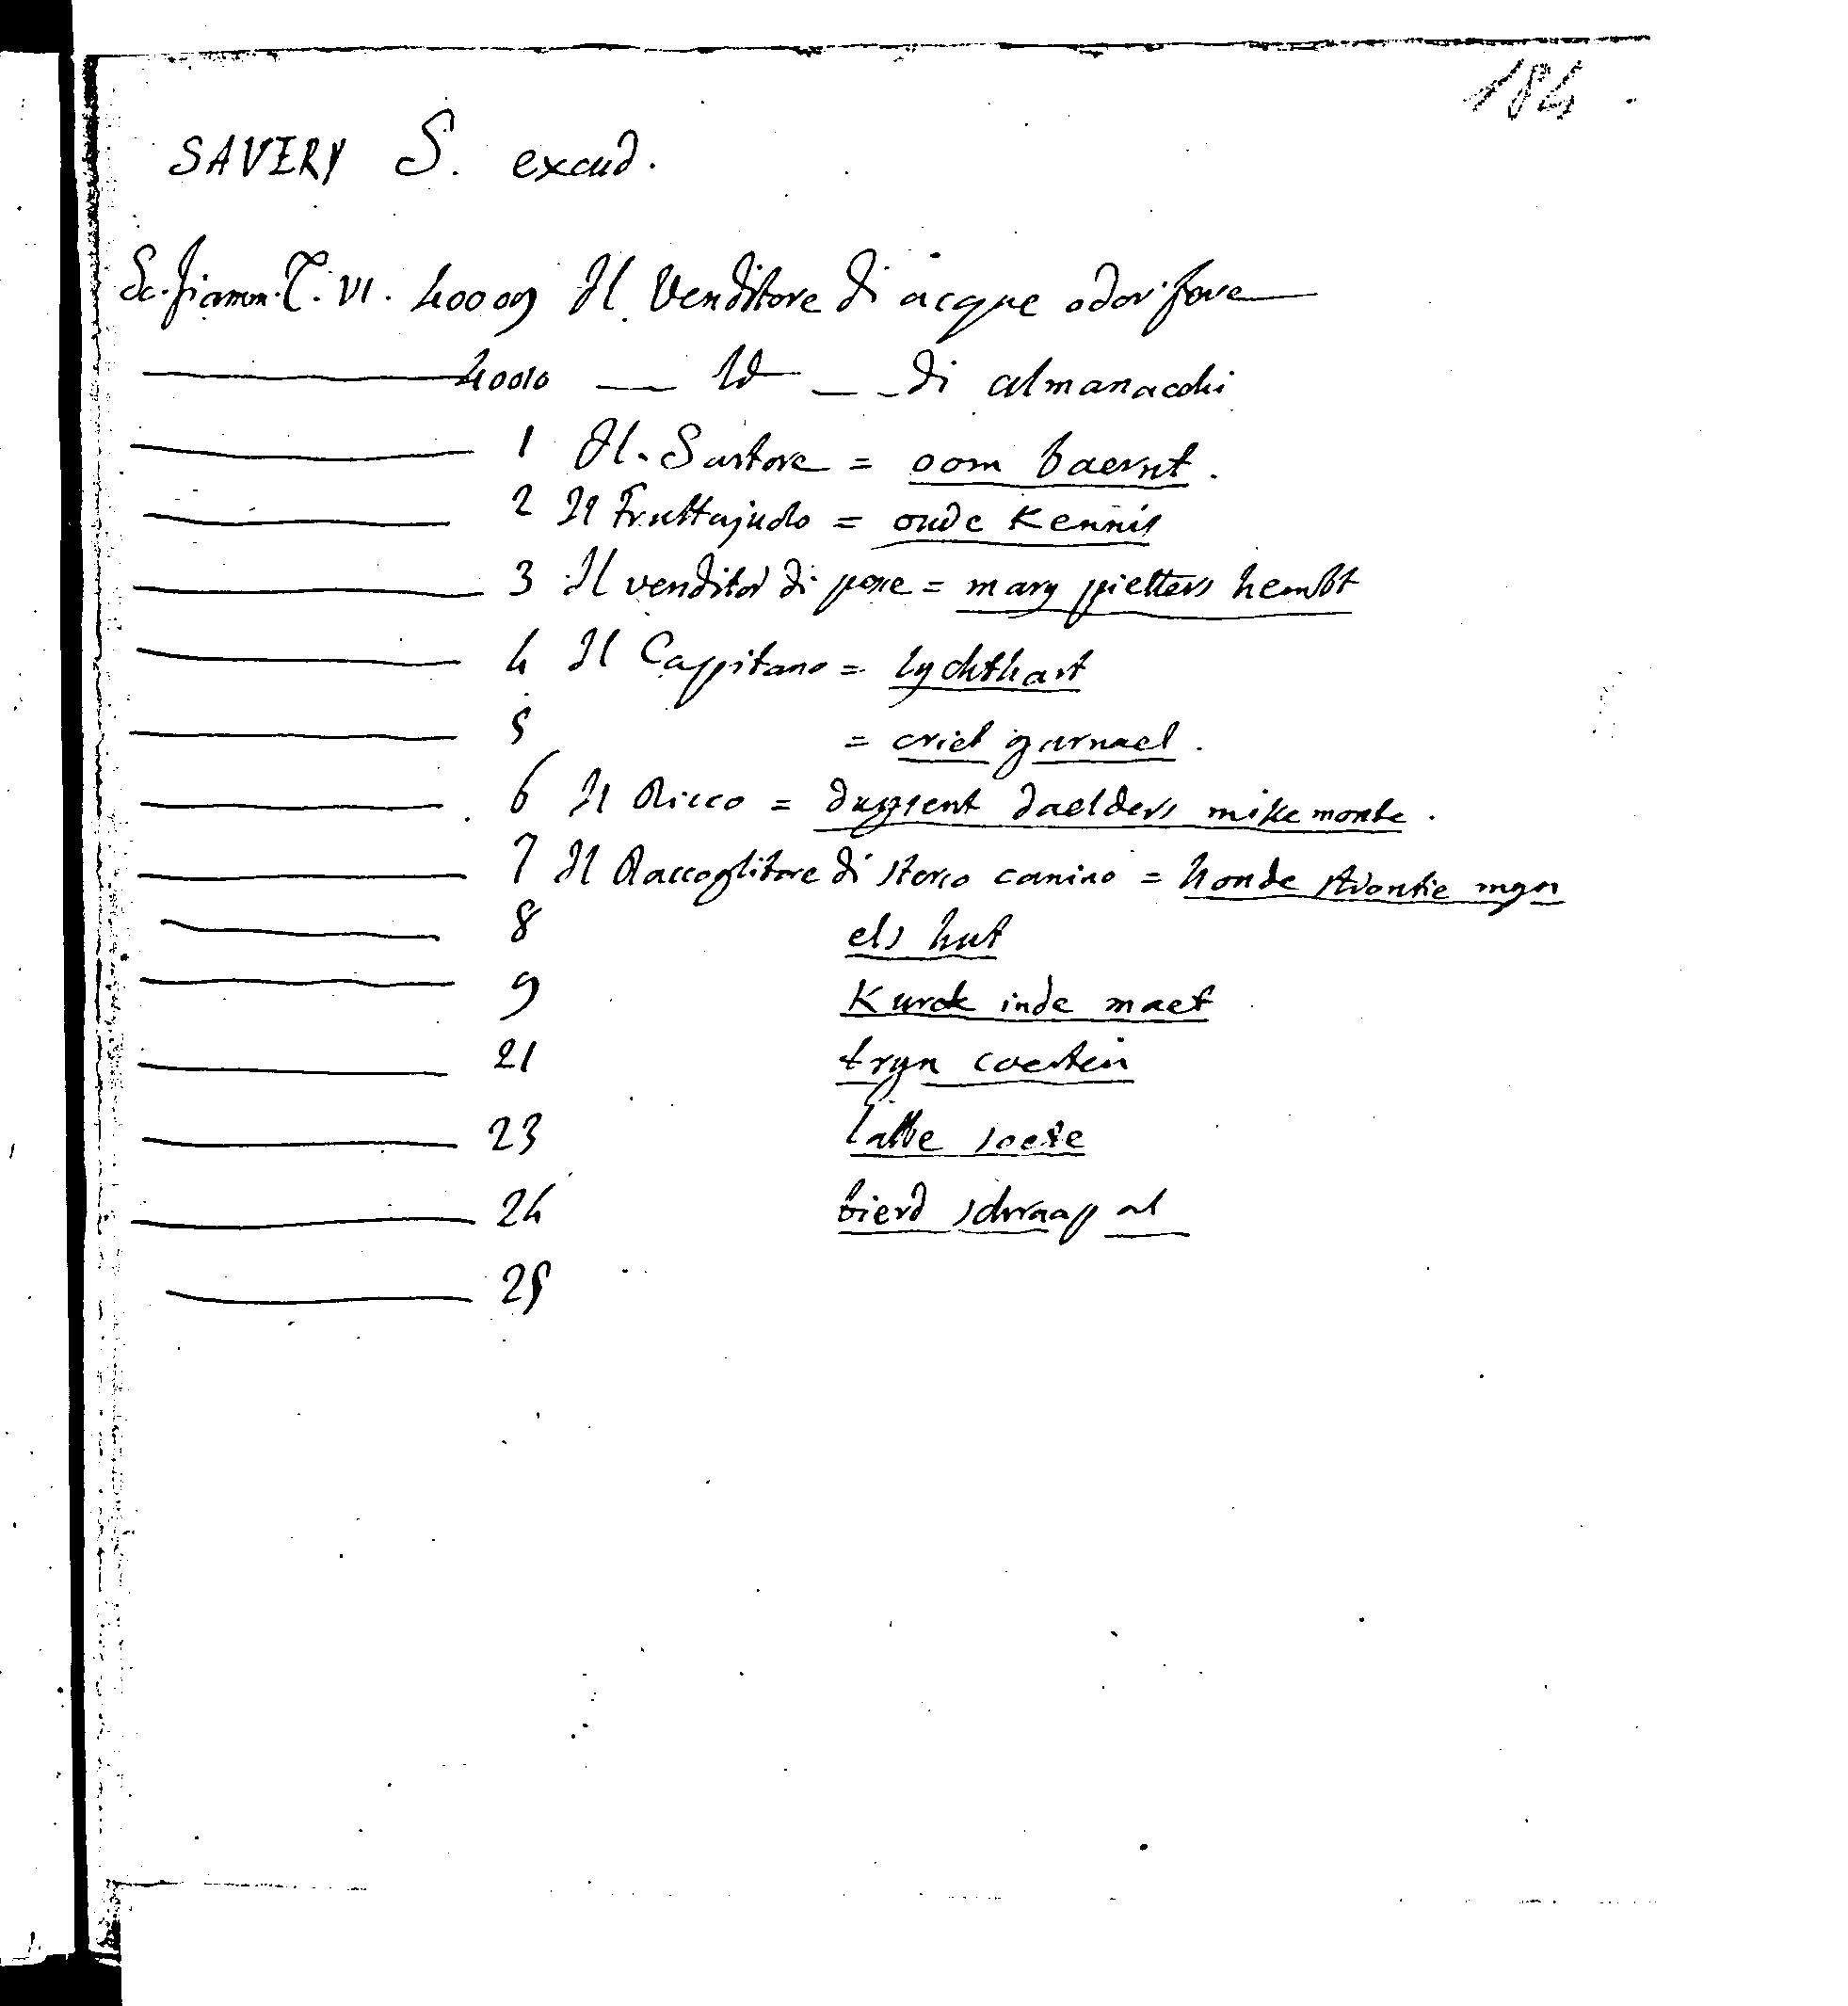 184.
SAVERY S. excud.
Sc. fiamm. T. VI. 40009 Il Venditore di acque odorifere
40010 — Id — di almanacchi
1 Il Sartore = oom baernt.
2 Il Fruttajuolo = oude Kennis
3 Il venditor di pesce = mary pietters hembt
4 Il Cappitano = lychthart
5 = criel garnael.
6 Il Ricco = duysent daelders mike monke.
7 Il Raccoglitore di sterco canino = honde strontie myn
8 els hut
9 Kurck inde maet
21 tryn
23 soete
24 bierd schraap al
25